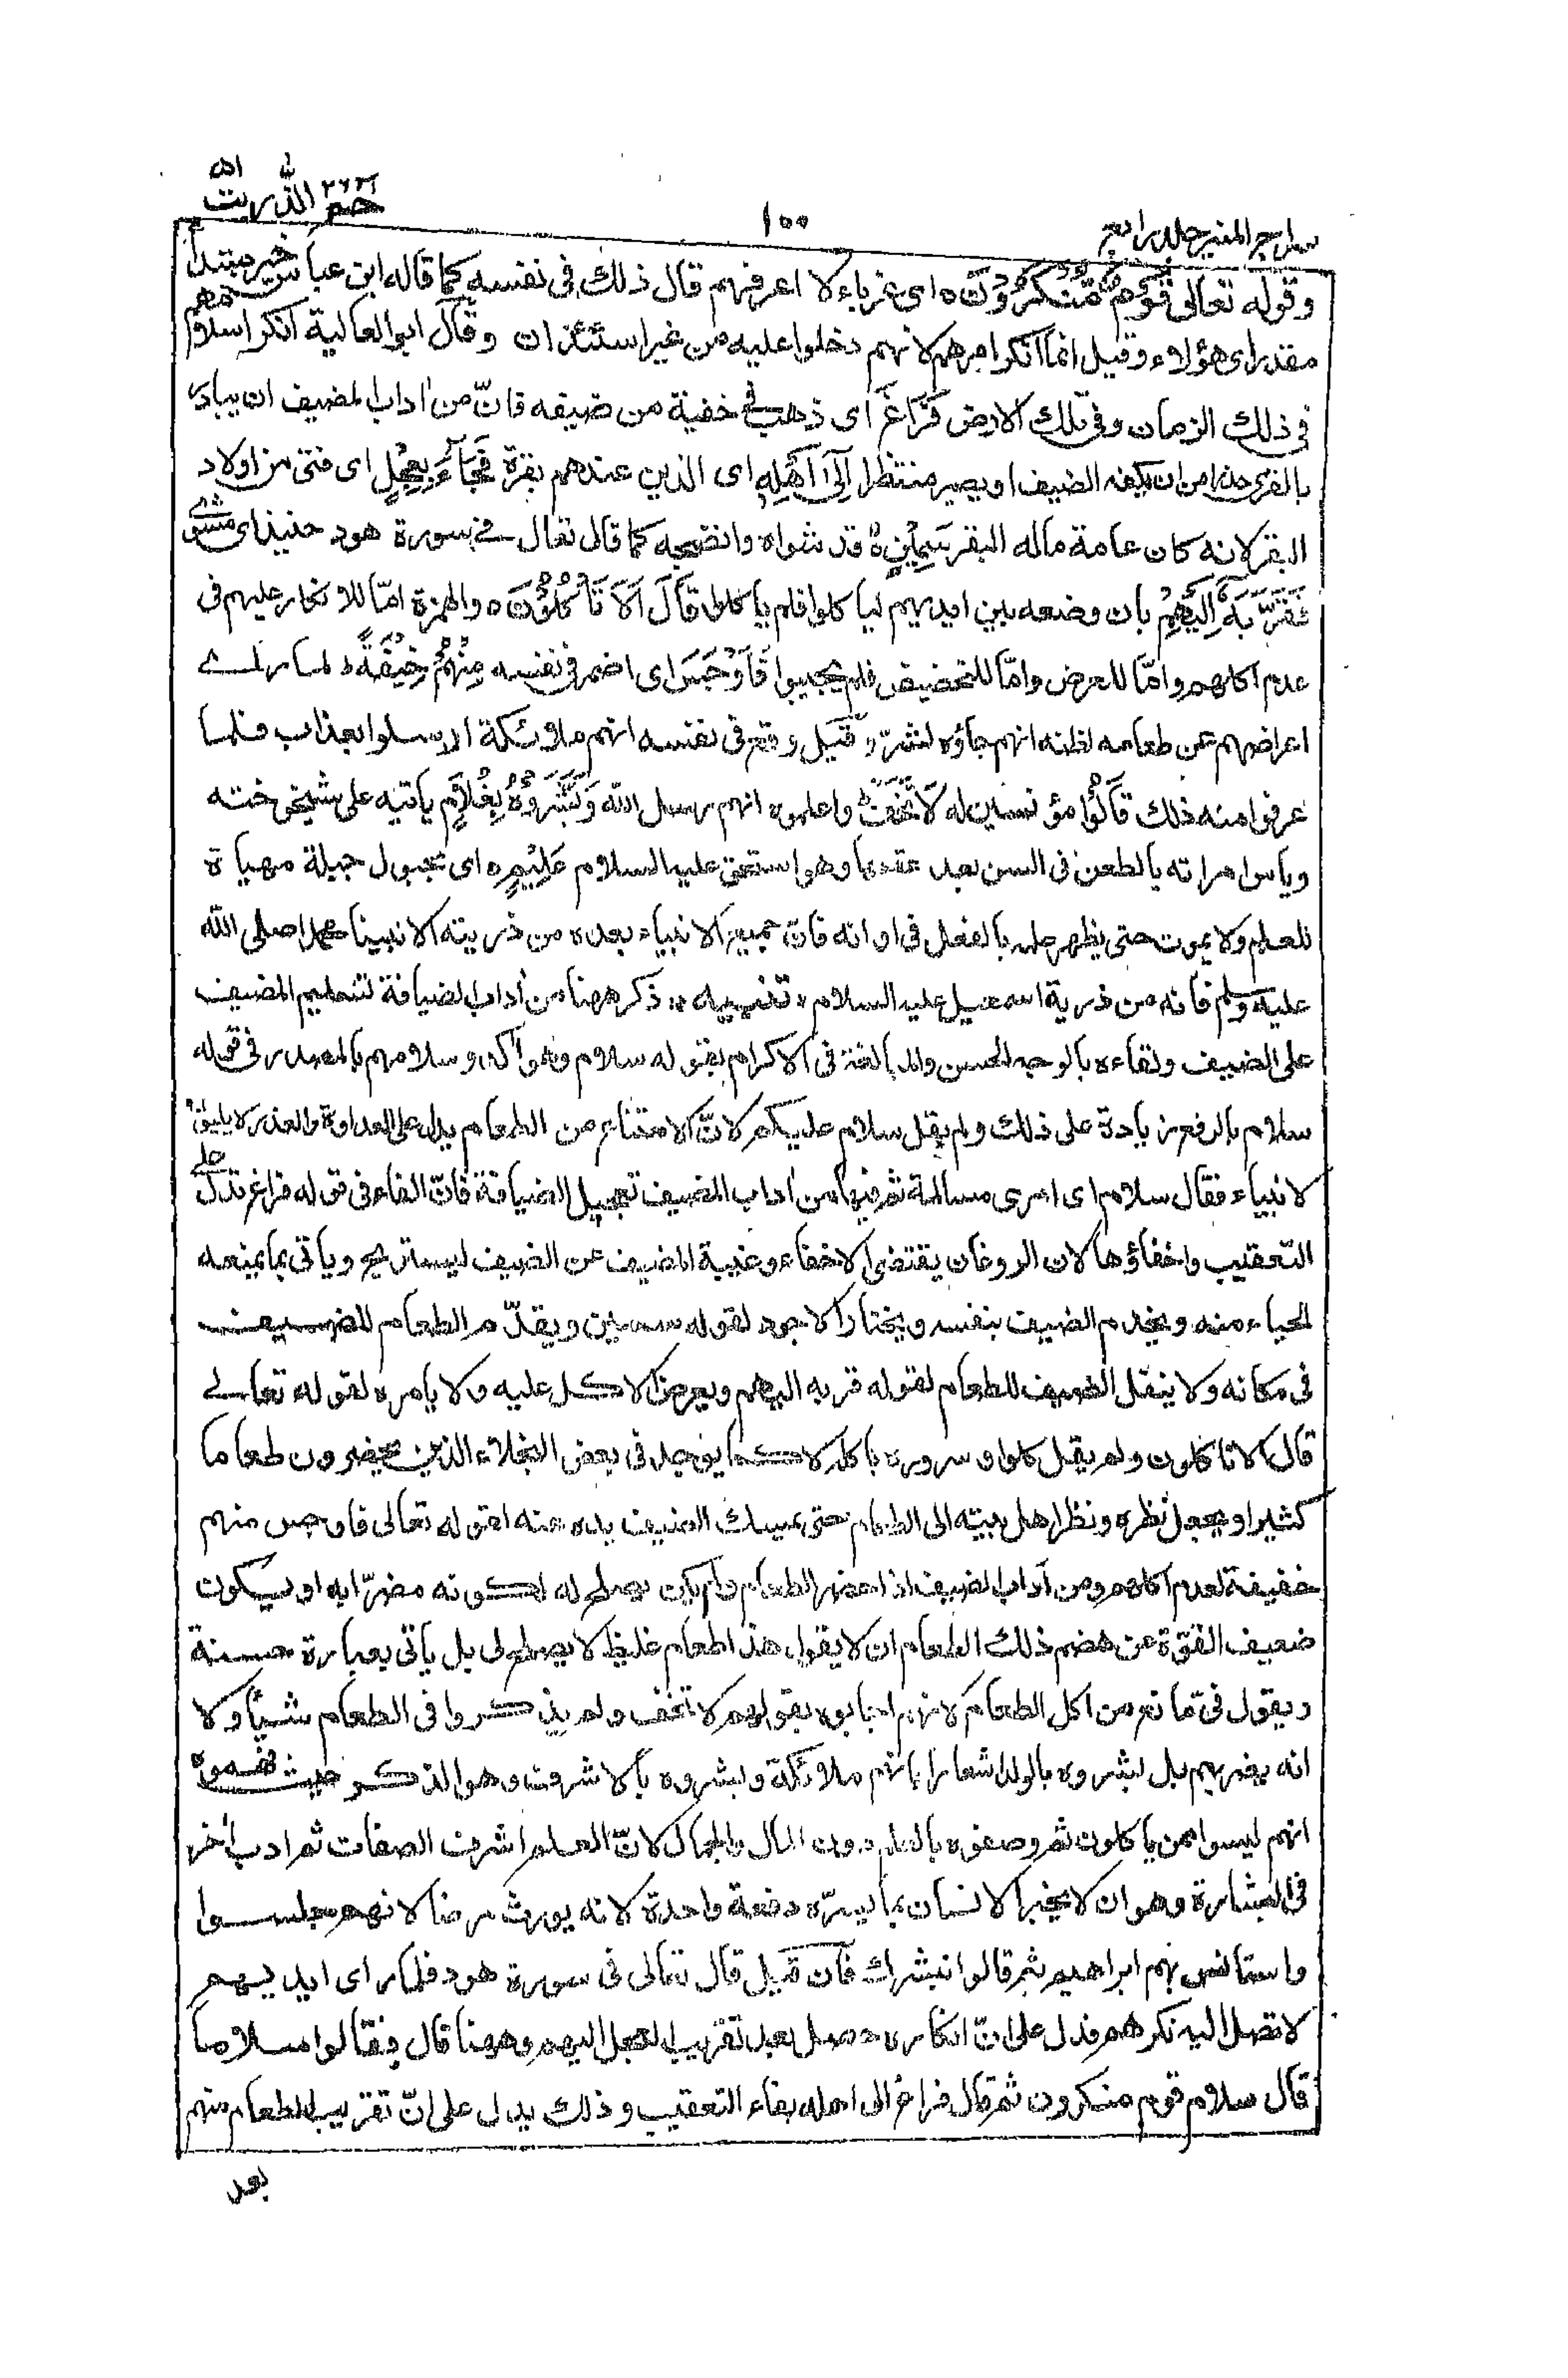 سراج المنير جلد رابع
١٠٠
حٰمٓ ٢٦ الذٰريٰت ٥١
وقوله تعالى قَوْمٌ مُّنْكَرُوْنَ ه اى غرباء لا اعرفهم قال ذلك فى نفسه كما قاله ابن عباس خبر مبتدأ
مقدر اى هؤلاء وقيل انما انكر امرهم لانهم دخلوا عليه من غير استئذان وقال ابو العالية انكر اسلامهم
فى ذلك الزمان وفى تلك الارض فَرَاغَ اى ذهب فى خفية من ضيفه فانّ من اداب المضيف ان يبادر
بالقرى حذرا من ان يكفه الضيف او يصير منتظرا اِلٰٓى اَهْلِهٖ اى الذين عندهم بقرة فَجَآءَ بِعِجْلٍ اى فتى من اولاد
البقر لانه كان عامة ماله البقر سَمِيْنٍ ه قد شواه وانضجه كما قال تعالى فى سورة هود حنيذ اى مشوى
فَقَرَّبَهٗٓ اِلَيْهِمْ بان وضعه بين ايديهم لياكلوا فلم ياكلوا قَالَ اَلَا تَاْكُلُوْنَ ه والهمزة امّا للانكار عليهم فى
عدم اكلهم وامّا للعرض وامّا للتحضيض فلم يجيبوا فَاَوْجَسَ اى اضمر فى نفسه مِنْهُمْ خِيْفَةً ط لما راى
اعراضهم عن طعامه لظنه انهم جاؤه لشرّ وقيل وقع فى نفسه انهم ملائكة ارسلوا بعذاب فلما
عرفوا منه ذلك قَالُوْا مؤنسين له لَا تَخَفْ ط واعلموه انهم رسل الله وَبَشَّرُوْهُ بِغُلَامٍ ياتيه على شيخوخته
وياس امراته بالطعن فى السن بعد عقمها وهو اسحق عليه السلام عَلِيْمٍ ه اى مجبول جبلة مهياة
للعلم ولا يموت حتى يظهر علمه بالفعل فى اوانه فانّ جميع الانبياء بعده من ذريته الا نبينا محمدا صلى الله
عليه وسلم فانه من ذرية اسمعيل عليه السلام ، تنبيه ،، ذكر ههنا من اداب الضيافة تسليم المضيف
على الضيف ولقاءه بالوجه الحسن والمبالغة فى الاكرام بقوله سلام وهو اكد وسلامهم بالمصدر فى قوله
سلام بالرفع زيادة على ذلك ولم يقل سلام عليكم لانّ الامتناع من الطعام يدل على العداوة والغدر لا يليق
لانبياء فقال سلام اى امرى مسالمة ثم فيها من اداب المضيف تعجيل الضيافة فانّ الفاء فى قوله فراغ تدل على
التعقيب واخفاؤها لان الروغان يقتضى الاخفاء وغيبة المضيف عن الضيف ليستريح وياتى بما يمنعه
الحياء منه ويخدم الضيف بنفسه ويختار الاجود لقوله سمين ويقدّم الطعام للضيف
فى مكانه ولا ينقل الضيف للطعام لقوله قربه اليهم ويعرض الاكل عليه ولا يامره لقوله تعالى
قال الا تاكلون ولم يقل كلوا وسروره باكله لا كما يوجد فى بعض البخلاء الذين يحضرون طعاما
كثيرا ويجعل نظره ونظر اهل بيته الى الطعام حتى يمسك الضيف يده عنه لقوله تعالى فاوجس منهم
خيفة لعدم اكلهم ومن آداب الضيف اذا حضر الطعام ولم يكن يصلح له لكونه مضرّا به او يكون
ضعيف القوّة عن هضم ذلك الطعام ان لا يقول هذا طعام غليظ لا يصلح لى بل ياتى بعبارة حسنة
ويقول فىّ مانع من اكل الطعام لانهم اجابوه بقولهم لا تخف ولم يذكروا فى الطعام شيأ ولا
انه يضرهم بل بشروه بالولد اشعارا بانهم ملائكة وبشروه بالاشرف وهو الذكر حيث فهموه
انهم ليسوا ممن ياكلون ثم وصفوه بالعلم دون المال والجمال لانّ العلم اشرف الصفات ثم ادب اخر
فى البشارة وهو ان لا يخبر الانسان بما يسرّه دفعة واحدة لانه يورث مرضا لانهم جلسوا
واستانس بهم ابراهيم ثم قالوا نبشرك فان قيل قال تعالى فى سورة هود فلما راى ايديهم
لا تصل اليه نكرهم فدل على انّ انكاره حصل بعد تقريب العجل اليهم وههنا قال فقالوا سلاما
قال سلام قوم منكرون ثم قال فراغ الى اهله بفاء التعقيب وذلك يدل على انّ تقريب الطعام منهم
بعد